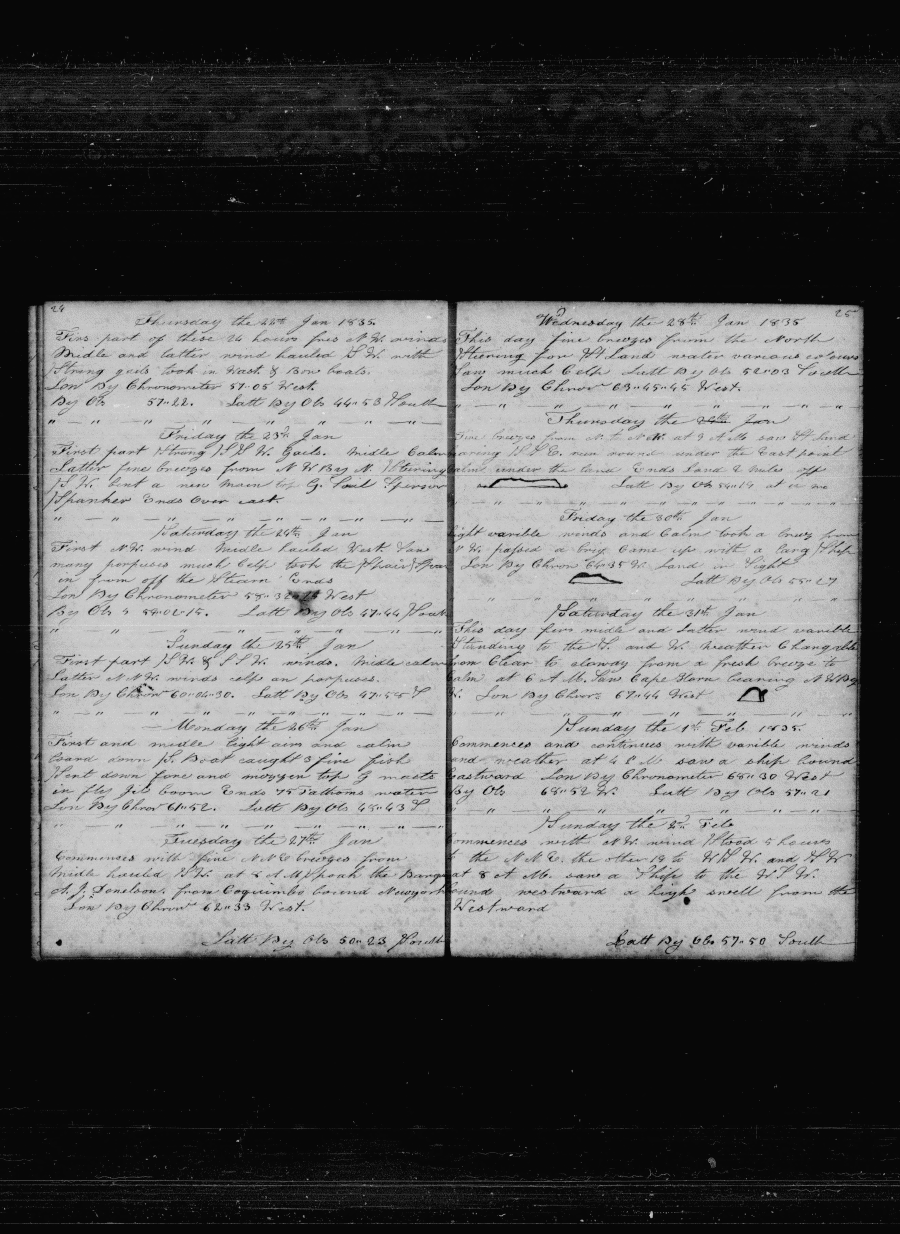 24
Thursday the 22th Jan 1835.
Firs part of these 24 hours fres N.W. winds
Midle and latter wind hauled S.W. with
Strong geels took in Wast & Bow boats.
Lon By Chronometer 57"05 West.
By Ob 57"22. Latt By Obs 44"53 South
Friday the 23th Jan
First part Strong S.S.W. Gails. Midle Calm
Latter fine breezes from N W By N. Stearing
S.W. bent a new Main top G. Sail Spencer
Spanker Ends Over cast.
Saturday the 24th Jan
First N.W. wind Midle hauled West. Saw
many porpuses much Celp took the Spair
in from off the Stearn Ends
Lon By Chronometer 58"32"15 West
By Obs 58"02"15. Latt By Obs 47"44 South
Sunday the 25th Jan
First part S.W. & S.S.W. winds. Midle calm
Latter N.N.W. winds celp an porpuses.
Lon By Chron 60"04"30. Latt By Obs 47"55 S
Monday the 26th Jan
First and midle light airs and calm
Loard down S. Boat caught 3 fine fish
Sent down fore and mozzen top G masts
in fly Jib boom Ends 75 Fathoms water
Lon By Chron 61"52. Latt By Obs 48"43 S
Tuesday the 27th Jan
Commences with fine N.N.E breezes from
Midle hauled N.W. at 8 A.M. Spoak the Barque
from Coquimbo bound Newyork
Lon By Chron 62"33 West.
Latt By Obs 50"23 South
25
Wednesday the 28th Jan 1835
This day fine breezes from the North
Stearing for St. Land water various colours
Saw much Celp Latt By Ob 52"03 South
Lon By Chron 63"45"45 West.
Thursday the 29th Jan
Fine breezes from N. to N.W. at 9 A.M. saw St. land
bearing S.S.E. run round under the East point
calm under the land Ends Land 2 miles off
Latt By Ob 54"19
Friday the 30th Jan
light varible winds and Calm took a breez from
N.W. passed a brig Came up with a larg Ship
Lon By Chron 64"35 W. Land in Sight
Latt By Ob 55"27
Saturday the 31th Jan
This day firs midle and latter wind varible
Standing to the S. and W. Weather Changable
from Clear to clowdy from a fresh breeze to
Calm at 6 A.M. Saw Cape Horn bearing N W By
W. Lon By Chron 67"44 West
Sunday the 1th Feb 1835.
Commences and continues with varible winds
and weather at 4 P M saw a ship bound
Eastward Lon By Chronometer 68"30 West
By Ob 68"52 W. Latt By Obs 57"21
Sunday the 2th Feb
Commences with N.W. wind Stood 5 hours
to the N.N.E. the other 19 to W.S.W. and S.W
at 8 A.M. saw a Ship to the W.S.W.
bound westward a high swell from the
Westward
Latt By Obs 57"50 South